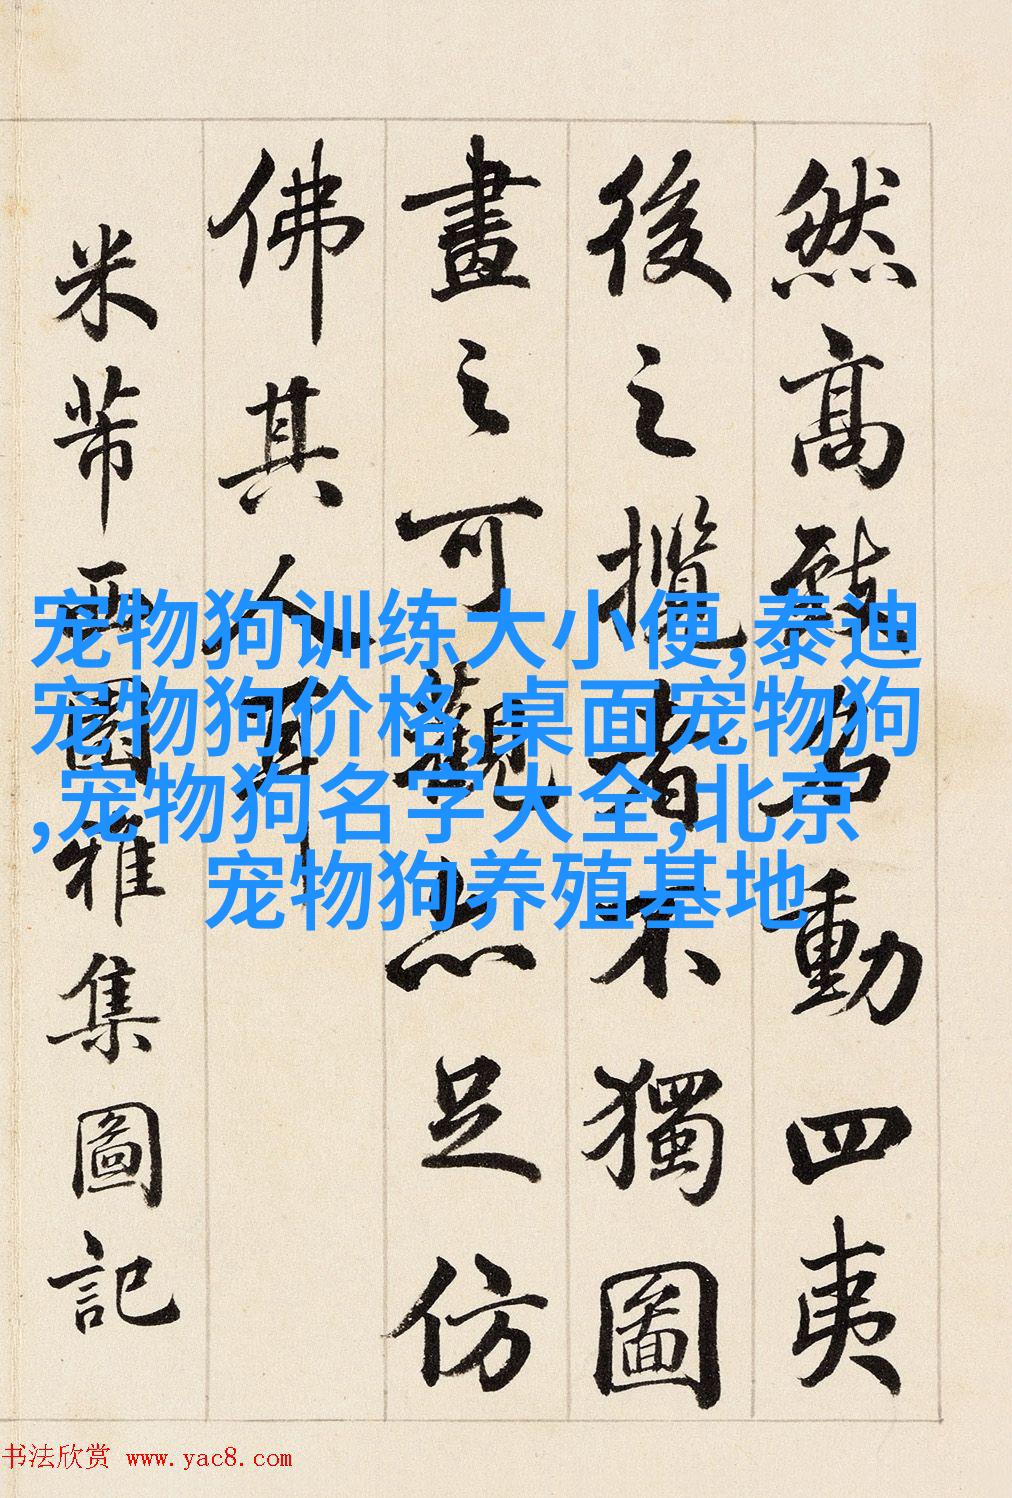 然高致名動四夷
後之攬者不獨圖
畫之可觀亦足仿
佛其人耳
米芾西園雅集圖記
宠物狗训练大小便,泰迪
宠物狗价格,桌面宠物狗
,宠物狗名字大全,北京
宠物狗养殖基地
书法欣赏 www.yac8.com